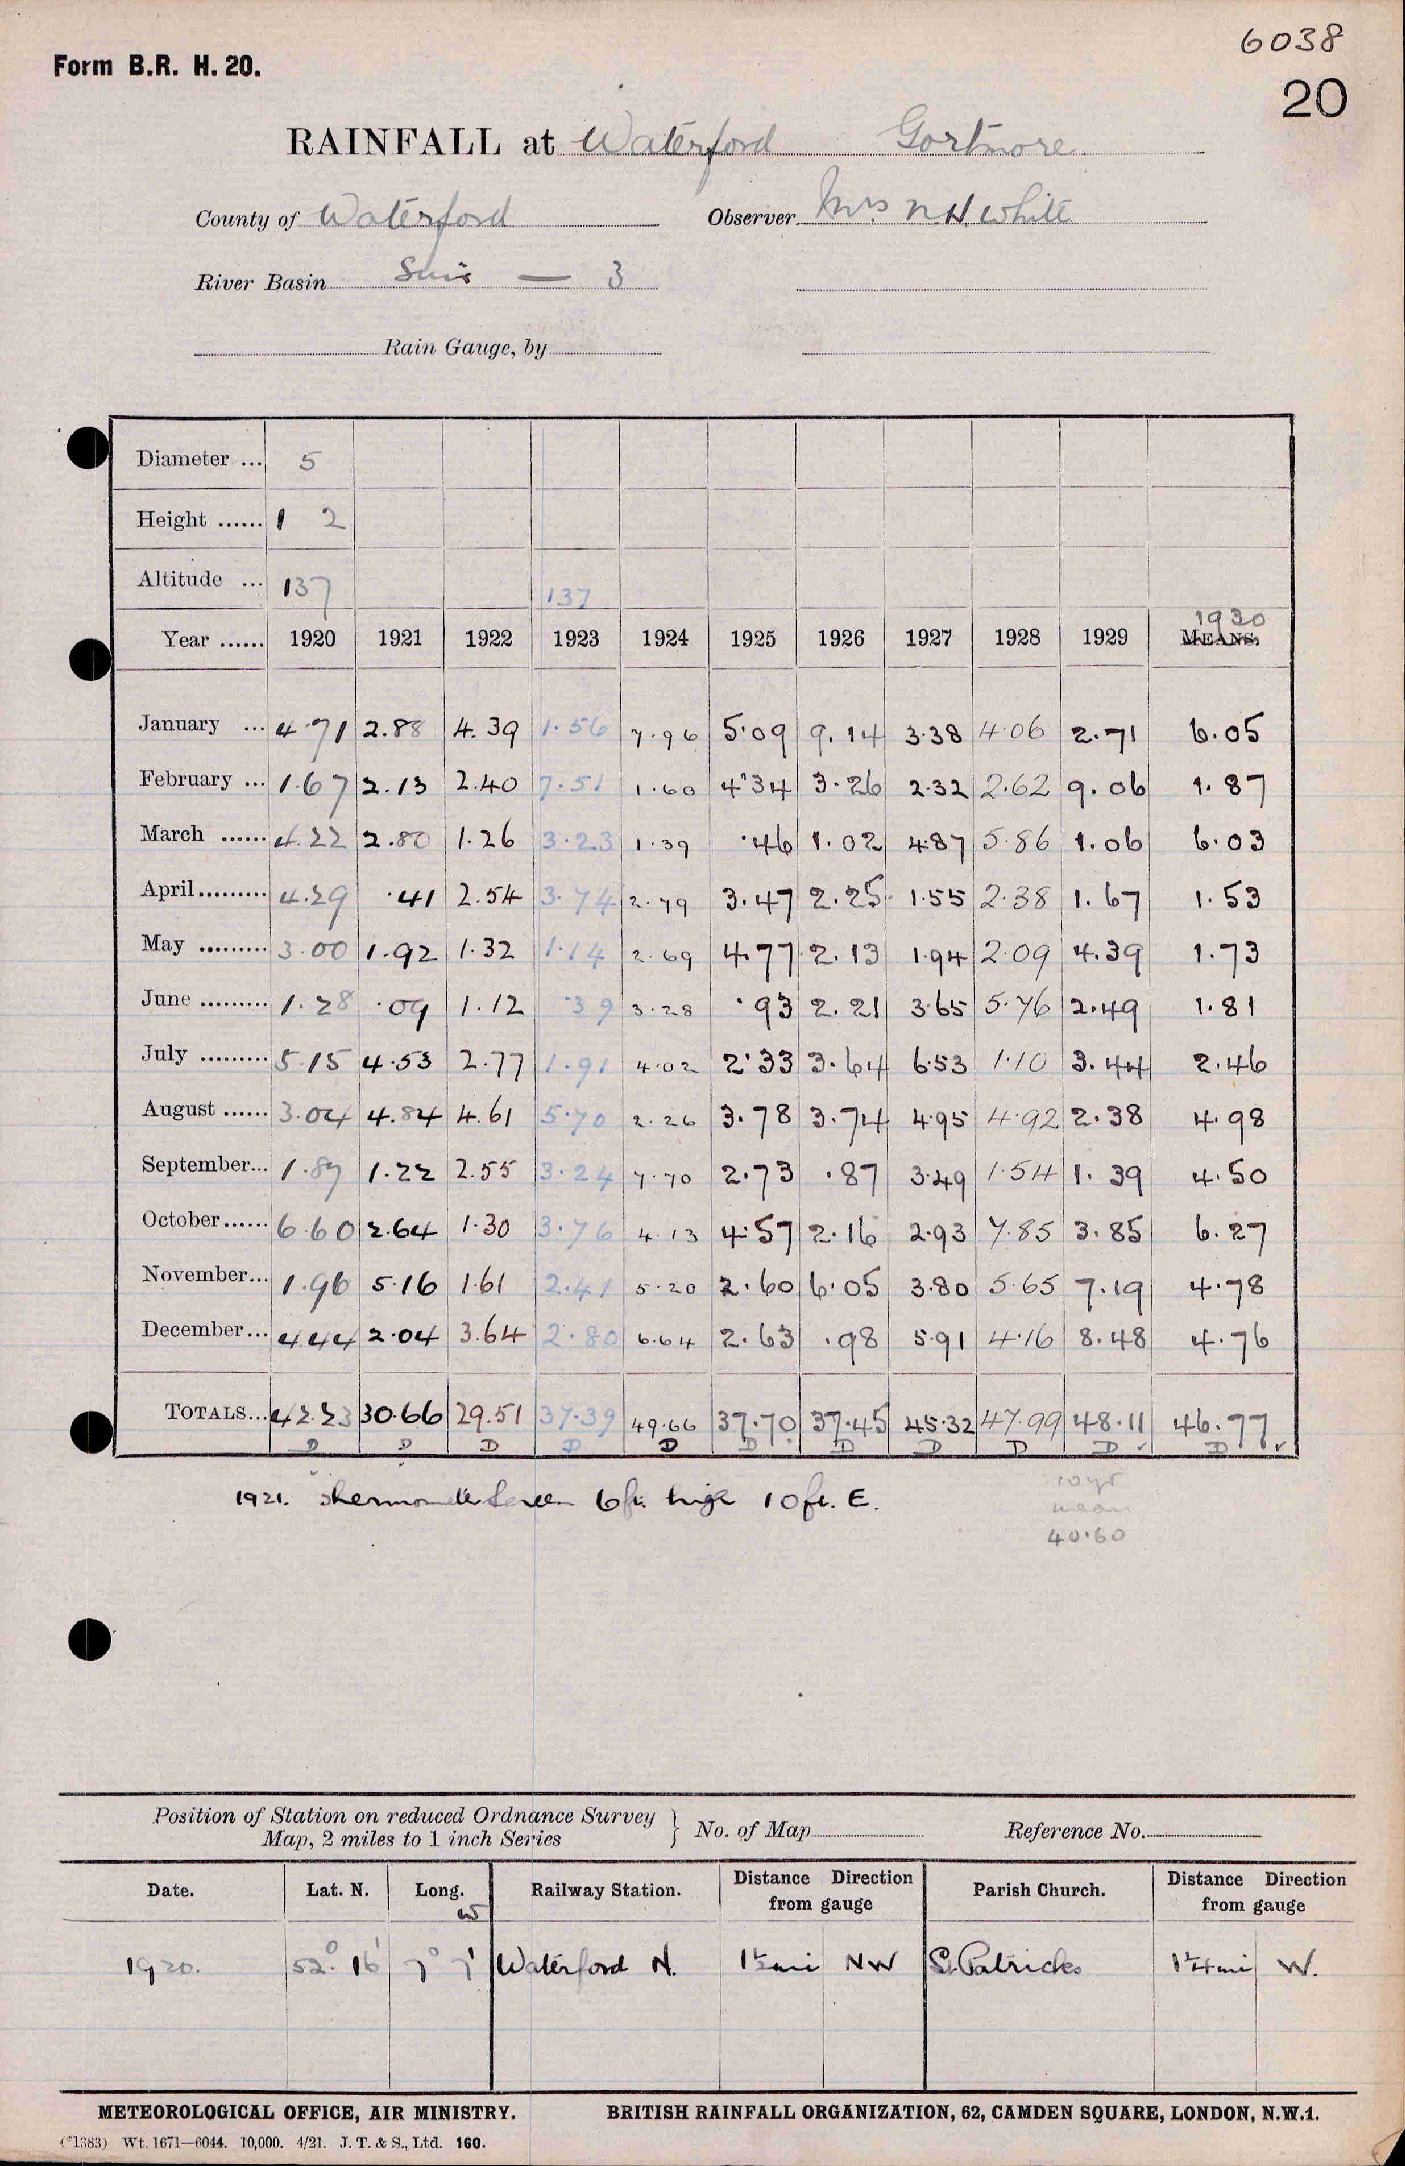 6038
Form B.R. H. 20.
20
RAINFALL at Waterford Gortmore
County of Waterford Observer Mrs N H White
River Basin Suir — 3
Rain Gauge, by
Diameter ... 5
Height ...... 1 2
Altitude ... 137 137
1930
Year ...... 1920 1921 1922 1923 1924 1925 1926 1927 1928 1929 MEANS.
January ... 4.71 2.88 4.39 1.56 7.96 5.09 9.14 3.38 4.06 2.71 6.05
February ... 1.67 2.13 2.40 7.51 1.60 4.34 3.26 2.32 2.62 9.06 1.87
March ...... 4.22 2.80 1.26 3.23 1.39 .46 1.02 4.87 5.86 1.06 6.03
April ......... 4.29 .41 2.54 3.74 2.79 3.47 2.25 1.55 2.38 1.67 1.53
May ......... 3.00 1.92 1.32 1.14 2.69 4.77 2.13 1.94 2.09 4.39 1.73
June ......... 1.28 .09 1.12 .39 3.28 .93 2.21 3.65 5.76 2.49 1.81
July ......... 5.15 4.53 2.77 1.91 4.02 2.33 3.64 6.53 1.10 3.44 2.46
August ...... 3.04 4.84 4.61 5.70 2.26 3.78 3.74 4.95 4.92 2.38 4.98
September... 1.87 1.22 2.55 3.24 7.70 2.73 .87 3.49 1.54 1.39 4.50
October...... 6.60 2.64 1.30 3.76 4.13 4.57 2.16 2.93 7.85 3.85 6.27
November... 1.96 5.16 1.61 2.41 5.20 2.60 6.05 3.80 5.65 7.19 4.78
December... 4.44 2.04 3.64 2.80 6.64 2.63 .98 5.91 4.16 8.48 4.76
TOTALS... 42.23 30.66 29.51 37.39 49.66 37.70 37.45 45.32 47.99 48.11 46.77
D D D D D D D D D D D
1921. Thermometer Screen 6ft. high 10ft. E.
10 yr
mean
40.60
Position of Station on reduced Ordnance Survey
Map, 2 miles to 1 inch Series } No. of Map Reference No.
Date. Lat. N. Long. W Railway Station. Distance Direction from gauge Parish Church. Distance Direction from gauge
1920. 52° 16' 7° 7' Waterford N. 1½mi NW St. Patricks 1¼mi W.
METEOROLOGICAL OFFICE, AIR MINISTRY. BRITISH RAINFALL ORGANIZATION, 62, CAMDEN SQUARE, LONDON, N.W.1.
(*1383) Wt. 1671—6044. 10,000. 4/21. J. T. & S., Ltd. 160.